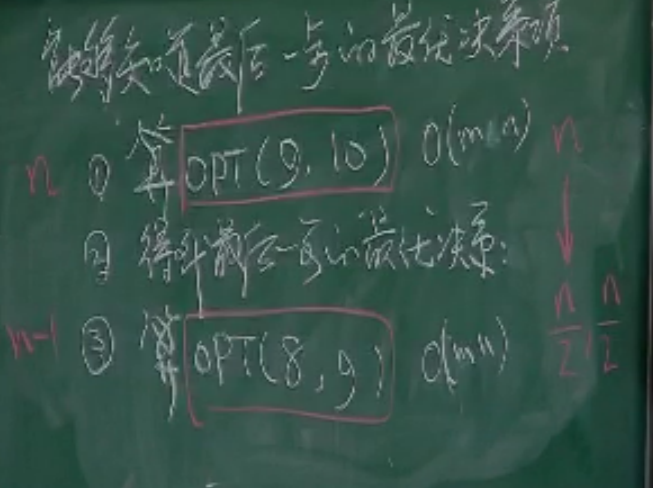 能够知道最后一步的最优决策项
n ① 算 OPT(9, 10) O(mn) n
② 得到最后一步的最优决策;
n-1 ③ 算 OPT(8, 9) O(mn) n/2, n/2